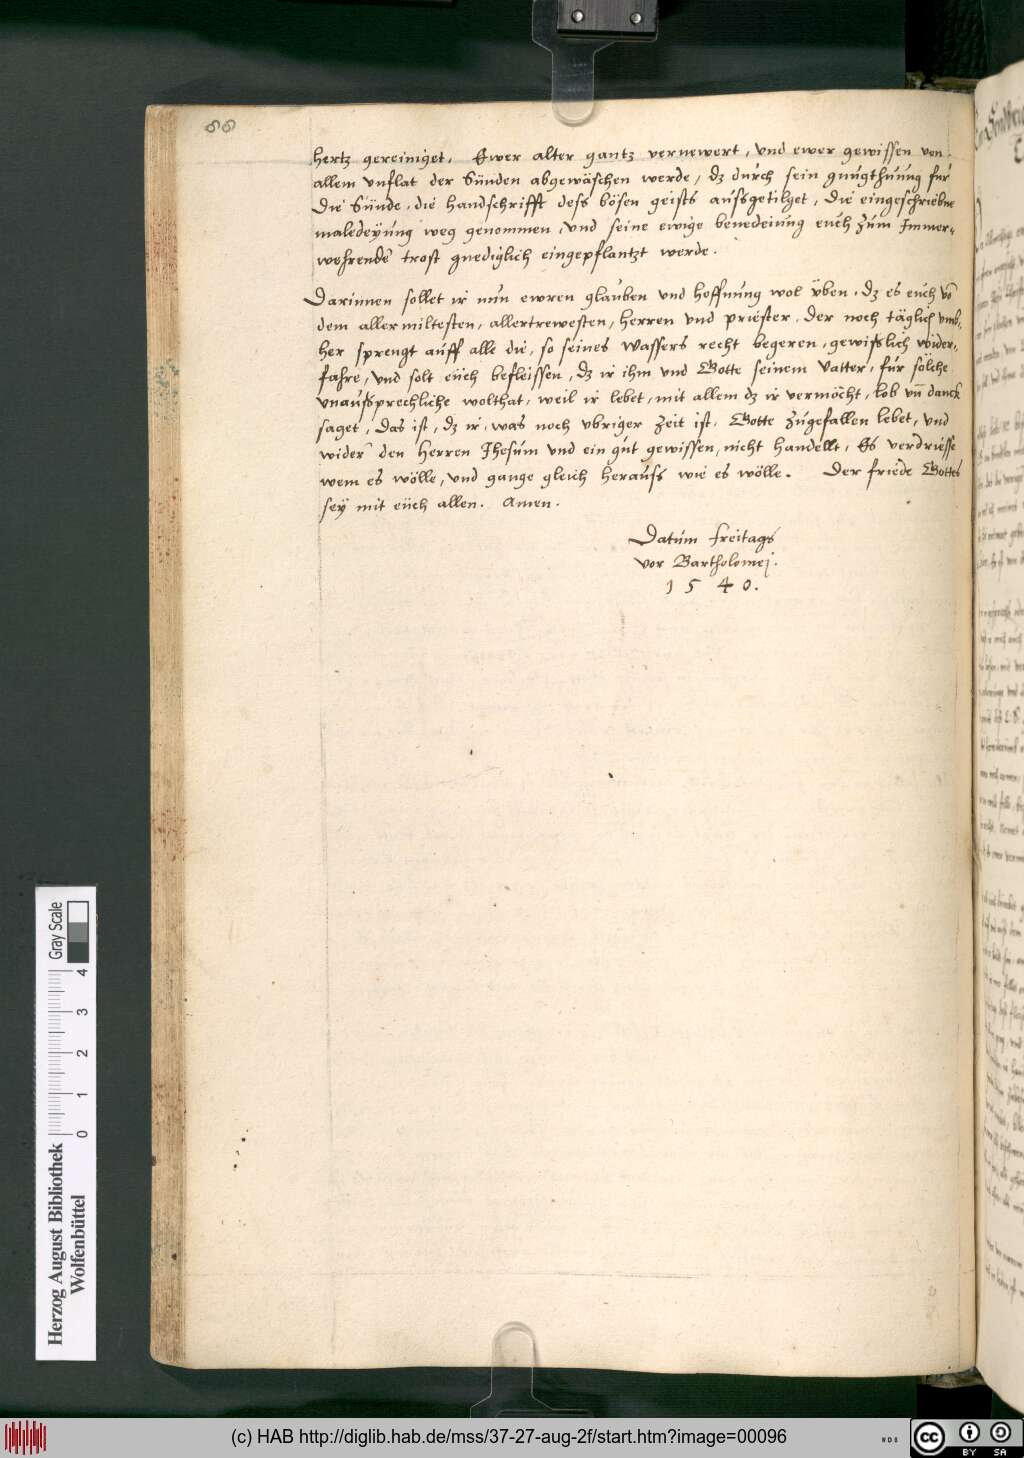 88
hertz gereiniget. Ewer alter gantz vernewert, vnd ewer gewissen von
allem vnflat der Sünden abgewäschen werde, dz durch sein gnugthuung fur
Die Sünde, die handschrifft dess bösen geists aussgetilget, Die eingeschriebne
maledeyung weg genommen, vnd seine ewige benedeiung euch zum Immer-
wehrende trost gnediglich eingepflantzt werde.
Darinnen sollet ir nun ewren glauben vnd hoffnung wol üben, dz es euch vō
dem allermiltesten, allertrewesten, herren vnd priester. Der noch täglich vmb-
her sprengt auff alle die, so seines Wassers recht begeren, gewisslich wider-
fahre, vnd solt euch befleissen, dz ir ihm vnd Gotte seinem Vatter, fur solche
vnaussprechliche wolthat, weil ir lebet, mit allem dz ir vermöcht, lob vn̄ danck
saget, Das ist, dz ir, was noch vbriger zeit ist. Gotte zugefallen lebet, vnd
wider den Herren Jhesum vnd ein gut gewissen, nicht handellt, Es verdriesse
wem es wölle, vnd gange gleich herauss wie es wölle. Der friede Gottes
sey mit euch allen. Amen.
Datum freitags
vor Bartholomej.
1540.
Herzog August Bibliothek
Wolfenbüttel
0 1 2 3 4
Gray Scale
(c) HAB http://diglib.hab.de/mss/37-27-aug-2f/start.htm?image=00096
WDB
cc BY SA